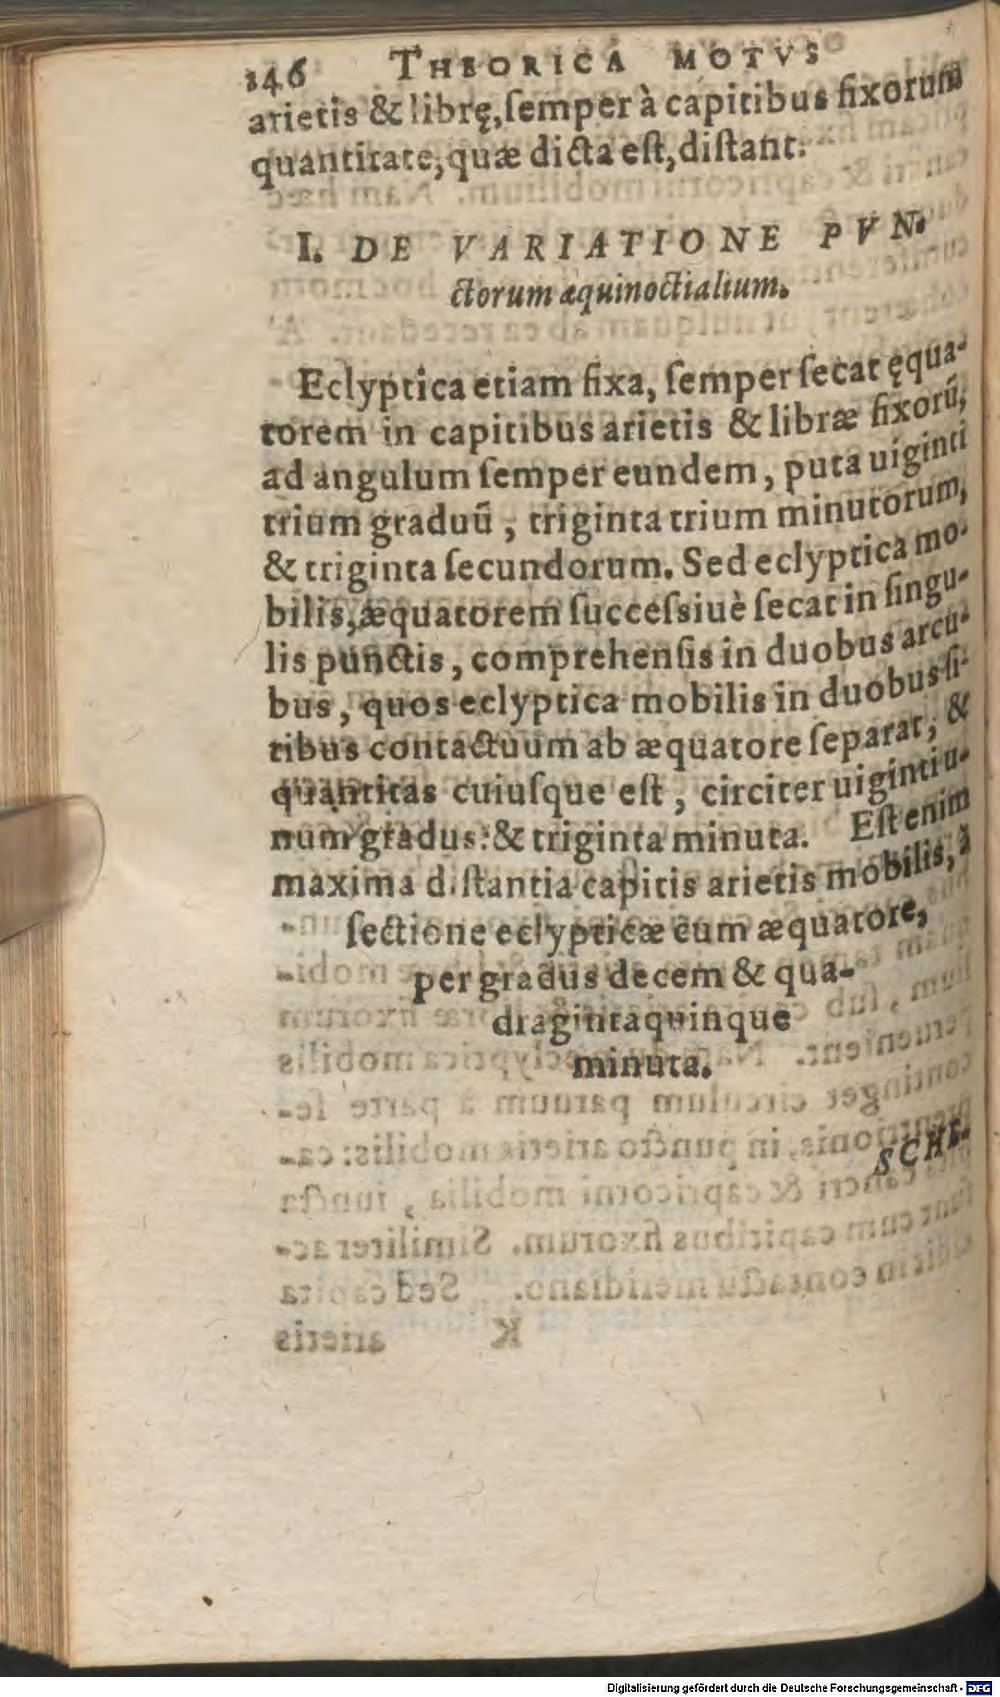 146 THEORICA MOTVS
arietis & librę, ſemper à capitibus fixorum
quantitate, quæ dicta eſt, diſtant.
I. DE VARIATIONE PVN-
ctorum æquinoctialium.
Eclyptica etiam fixa, ſemper ſecat ęqua-
torem in capitibus arietis & libræ fixorū,
ad angulum ſemper eundem, puta uiginti
trium graduū, triginta trium minutorum,
& triginta ſecundorum. Sed eclyptica mo-
bilis, æquatorem ſucceſsiuè ſecat in ſingu-
lis punctis, comprehenſis in duobus arcu-
bus, quos eclyptica mobilis in duobus ſi-
tibus contactuum ab æquatore ſeparat, &
quantitas cuiuſque eſt, circiter uigintiu-
num gradus: & triginta minuta. Eſt enim
maxima diſtantia capitis arietis mobilis, à
ſectione eclypticæ cum æquatore,
per gradus decem & qua-
dragintaquinque
minuta.
SCHE-
Digitalisierung gefördert durch die Deutsche Forschungsgemeinschaft - DFG